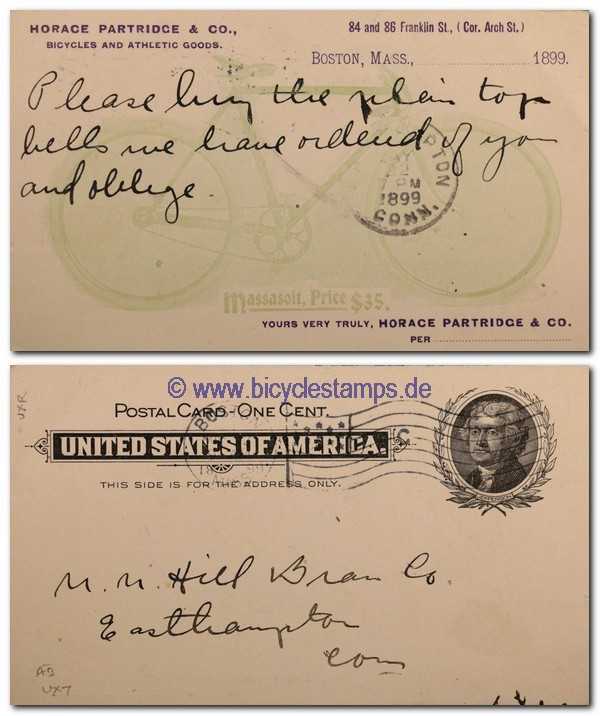 HORACE PARTRIDGE & CO.,
BICYCLES AND ATHLETIC GOODS.
84 and 86 Franklin St., (Cor. Arch St.)
BOSTON, MASS., 1899.
Please hurry the plain top
bells we have ordered of you
and oblige.
PTON
PM
1899
CONN.
Massasoit, Price $35.
YOURS VERY TRULY, HORACE PARTRIDGE & CO.
PER
© www.bicyclestamps.de
UXR
POSTAL CARD - ONE CENT.
BOSTON
UNITED STATES OF AMERICA.
C
THIS SIDE IS FOR THE ADDRESS ONLY.
JEFFERSON
N. N. Hill Brass Co.
Easthampton
Conn
A3
UX7